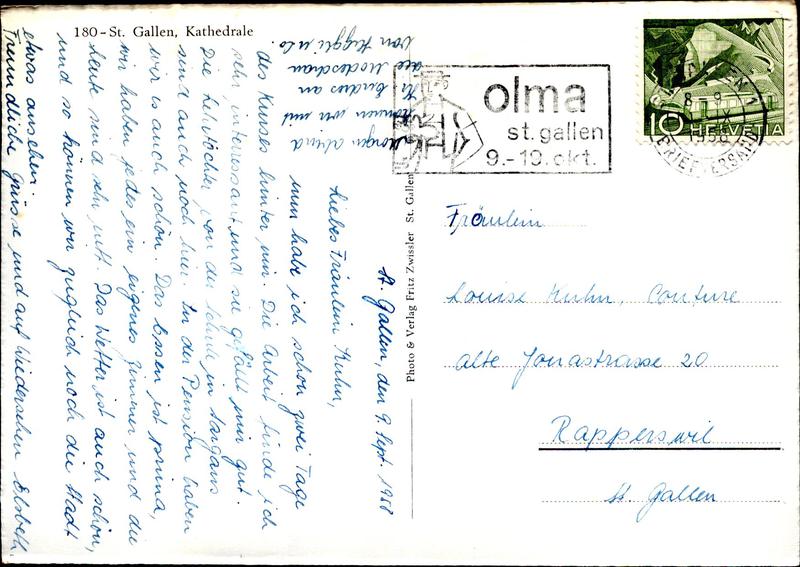 180 – St. Gallen, Kathedrale
St. Gallen, den 9. Sept. 1958
Liebes Fräulein Kuhn,
nun habe ich schon zwei Tage
des Kurses hinter mir. Die Arbeit finde ich
sehr interessant und sie gefällt mir gut.
Die
sind auch noch hier. In der Pension haben
wir es auch schön. Das Essen ist prima,
wir haben jedes ein eigenes Zimmer und die
Leute sind sehr nett. Das Wetter ist auch schön,
und so können wir zugleich noch die Stadt
etwas ansehen.
Freundliche Grüsse und auf Wiedersehen Elsbeth
Morgen abend
können wir mit
an
die Modeschau
von
Photo & Verlag Fritz Zwissler St. Gallen
olma
st. gallen
9.-19. okt.
ST. GALLEN 1
8-9
IX
1958
BRIEFVERSAND
10 HELVETIA
Fräulein
Louise Kuhn, Couture
alte Jonastrasse 20
Rapperswil
St. Gallen